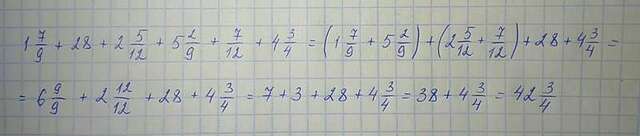 1 7/9 + 28 + 2 5/12 + 5 2/9 + 7/12 + 4 3/4 = (1 7/9 + 5 2/9) + (2 5/12 + 7/12) + 28 + 4 3/4 =
= 6 9/9 + 2 12/12 + 28 + 4 3/4 = 7 + 3 + 28 + 4 3/4 = 38 + 4 3/4 = 42 3/4